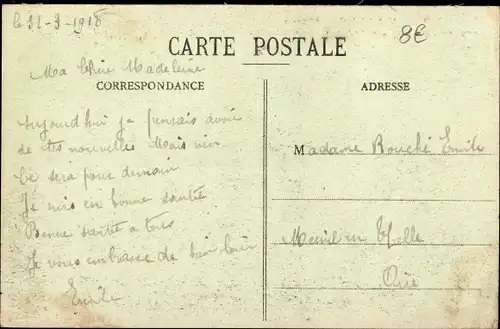 le 31-3-1918
8€
CARTE POSTALE
Ma chère Madeleine
CORRESPONDANCE
ADRESSE
Aujourd'hui je pensais avoir
de tes nouvelles Mais rien
Ce sera pour demain
Je suis en bonne santé
Bonne santé a tous
Je vous embrasse de bien loin
Emile
Madame Bouché Emile
Mesnil en Thelle
Oise